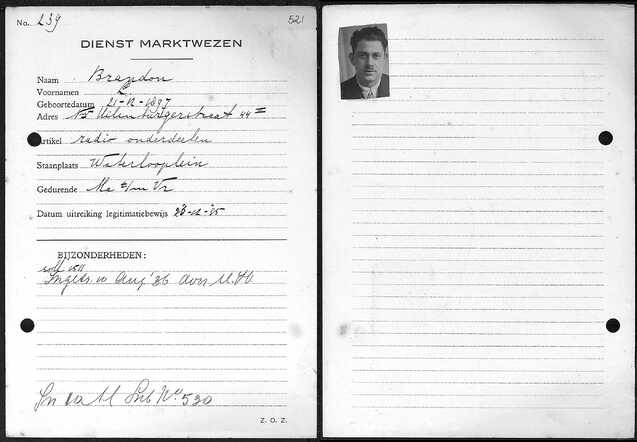 No. 239 521
DIENST MARKTWEZEN
Naam Brandon
Voornamen L.
Geboortedatum 21-12-1897
Adres Nwe Uilenburgerstraat 44 II
Artikel radio onderdelen
Staanplaats Waterlooplein
Gedurende Ma t/m Vr
Datum uitreiking legitimatiebewijs 23-12-'35
BIJZONDERHEDEN:
Aug '36 door
No 530
Z. O. Z.